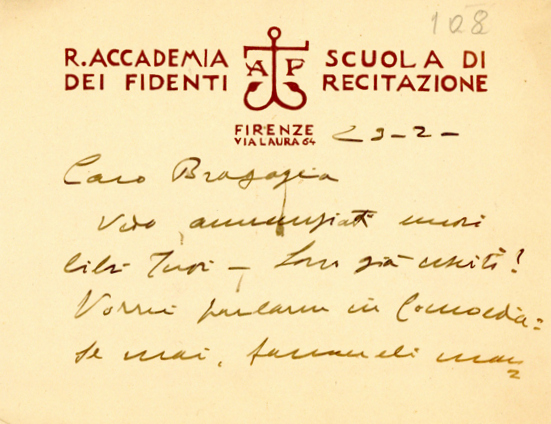 108
R. ACCADEMIA DEI FIDENTI
A F
SCUOLA DI RECITAZIONE
FIRENZE
VIA LAURA 64
23-2-
Caro Bragaglia
Vedo annunziati nuovi
libri Tuoi – Sono già usciti!
Vorrei parlarne in Comoedia:
Se mai, fammeli man